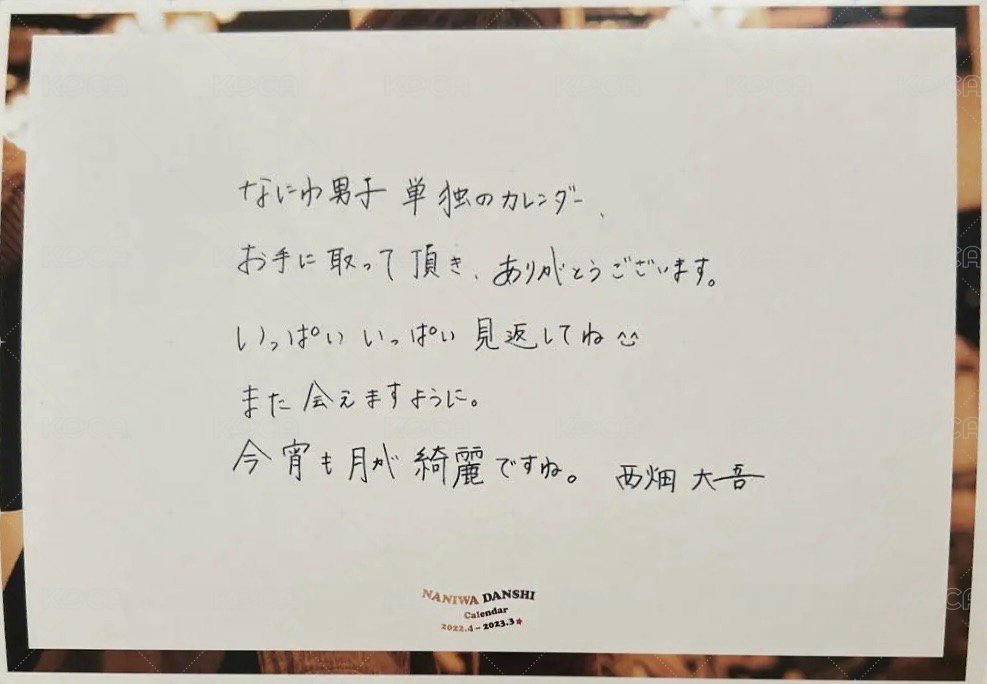 KOCA KOCA KOCA KOCA KOCA KOCA
なにわ男子 単独のカレンダー、
KOCA KOCA KOCA KOCA KOCA KOCA
お手に取って頂き、ありがとうございます。
いっぱい いっぱい 見返してね^^
また 会えますように。
KOCA KOCA KOCA KOCA KOCA KOCA
今宵も月が綺麗ですね。 西畑 大吾
NANIWA DANSHI
Calendar
2022.4-2023.3★